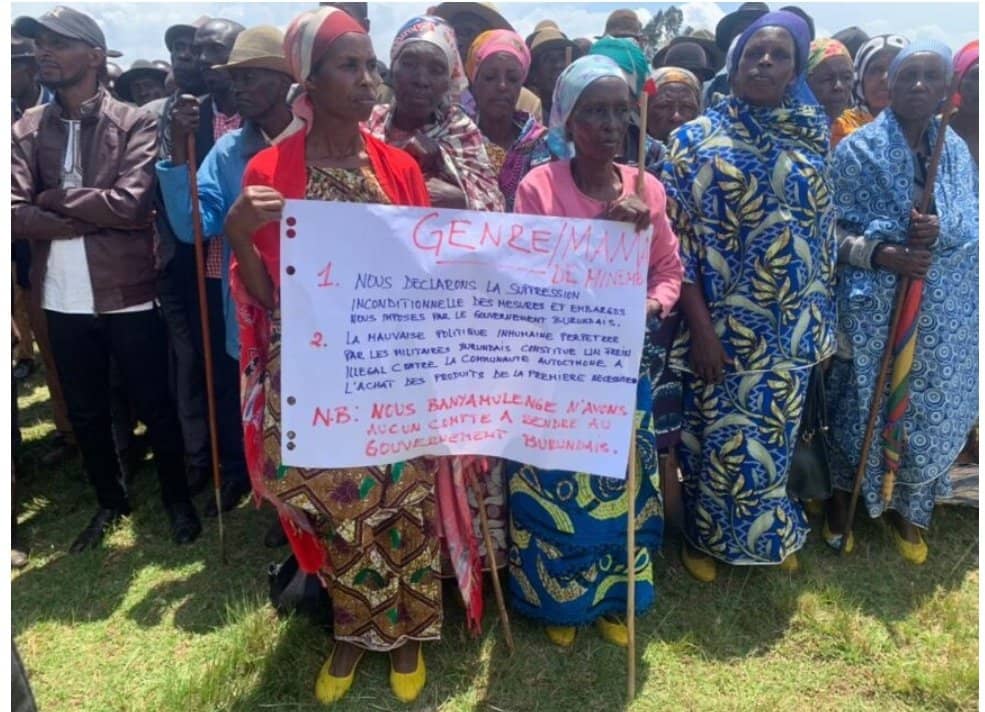 GENRE/MAMA
DE MINEMB
1. NOUS DECLARONS LA SUPPRESSION
INCONDITIONNELLE DES MESURES ET EMBARGOS
NOUS IMPOSES PAR LE GOUVERNEMENT BURUNDAIS.
2. LA MAUVAISE POLITIQUE INHUMAINE PERPETRER
PAR LES MILITAIRES BURUNDAIS CONSTITUE UN FREIN
ILLEGAL CONTRE LA COMMUNAUTE AUTOCHTONE A
L'ACHAT DES PRODUITS DE LA PREMIERE NECESSITER
N.B: NOUS BANYAMULENGE N'AVONS
AUCUN COMPTE A RENDRE AU
GOUVERNEMENT BURUNDAIS.